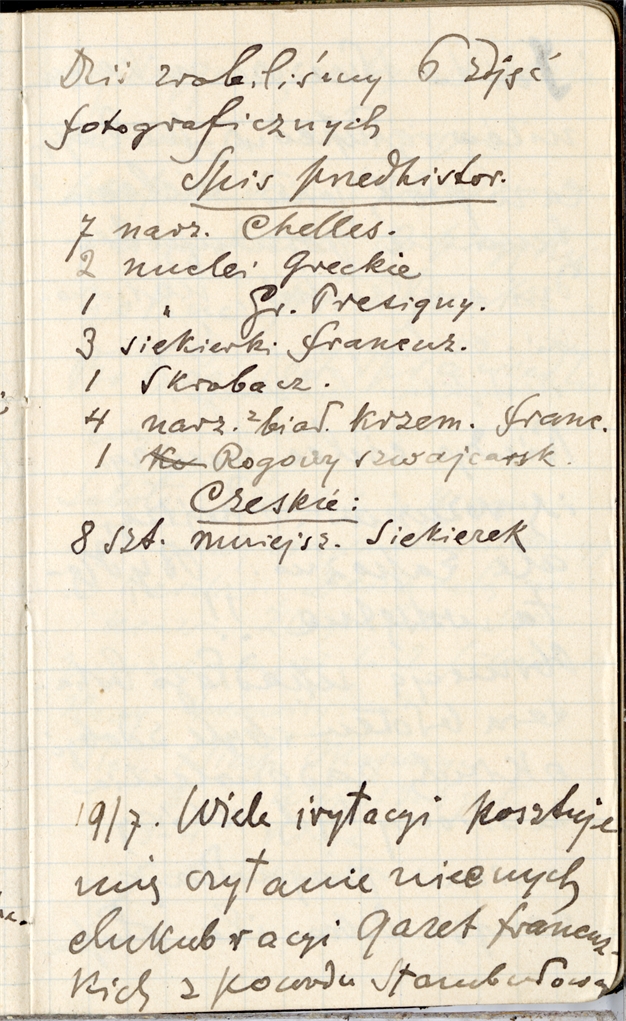 Dziś zrobiliśmy 6 zdjęć
fotograficznych
Spis przedhistor.
7 narz. Chelles.
2 nuclei Greckie
1 " Gr. Presigny.
3 siekierki francuz.
1 Skrobacz.
4 narz. z biał. krzem. franc.
1 Ko Rogowy szwajcarsk.
Czeskie:
8 szt. mniejsz. Siekierek
19/7. Wiele irytacyi kosztuje
mię czytanie niecnych
elukubracyi Gazet francuz-
kich z powodu